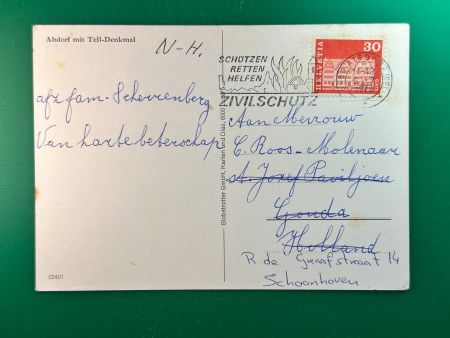 Altdorf mit Tell-Denkmal
N-H.
SCHÜTZEN
RETTEN
HELFEN
ZIVILSCHUTZ
HELVETIA
30
afz fam. Scherrenberg
Van harte beterschap
Aan Mevrouw
C. Roos-Molenaar
st. Jozef Paviljoen
Gouda
Holland
R. de Graafstraat 14
Schoonhoven
Globetrotter GmbH, Karten und Dias, 6000
C2401